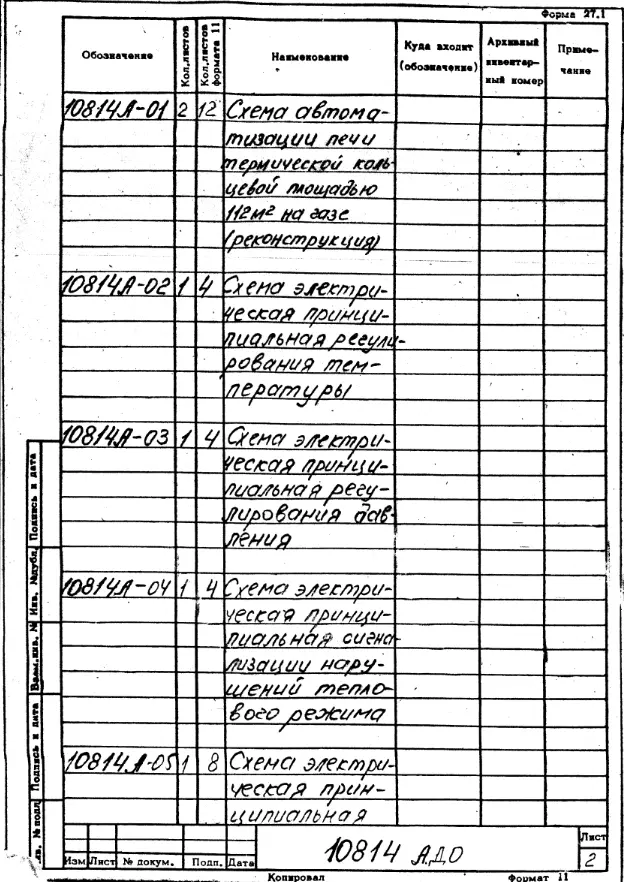 Форма 27.1
Обозначение Кол.листов Кол.листов формата 11 Наименование Куда входит (обозначение) Архивный инвентарный номер Примечание
10814А-01 2 12 Схема автома-
тизации печи
термической коль-
цевой площадью
112м² на газе
(реконструкция)
10814А-02 1 4 Схема электри-
ческая принци-
пиальная регули-
рования тем-
пературы
10814А-03 1 4 Схема электри-
ческая принци-
пиальная регу-
лирования дав-
ления
10814А-04 1 4 Схема электри-
ческая принци-
пиальная сигна-
лизации нару-
шений тепло-
вого режима
10814А-05 1 8 Схема электри-
ческая прин-
ципиальная
Подпись и дата
Инв. №дубл.
Взам.инв. №
Подпись и дата
Инв. №подл.
Изм Лист № докум. Подп. Дата
10814 АДО
Лист
2
Копировал Формат 11